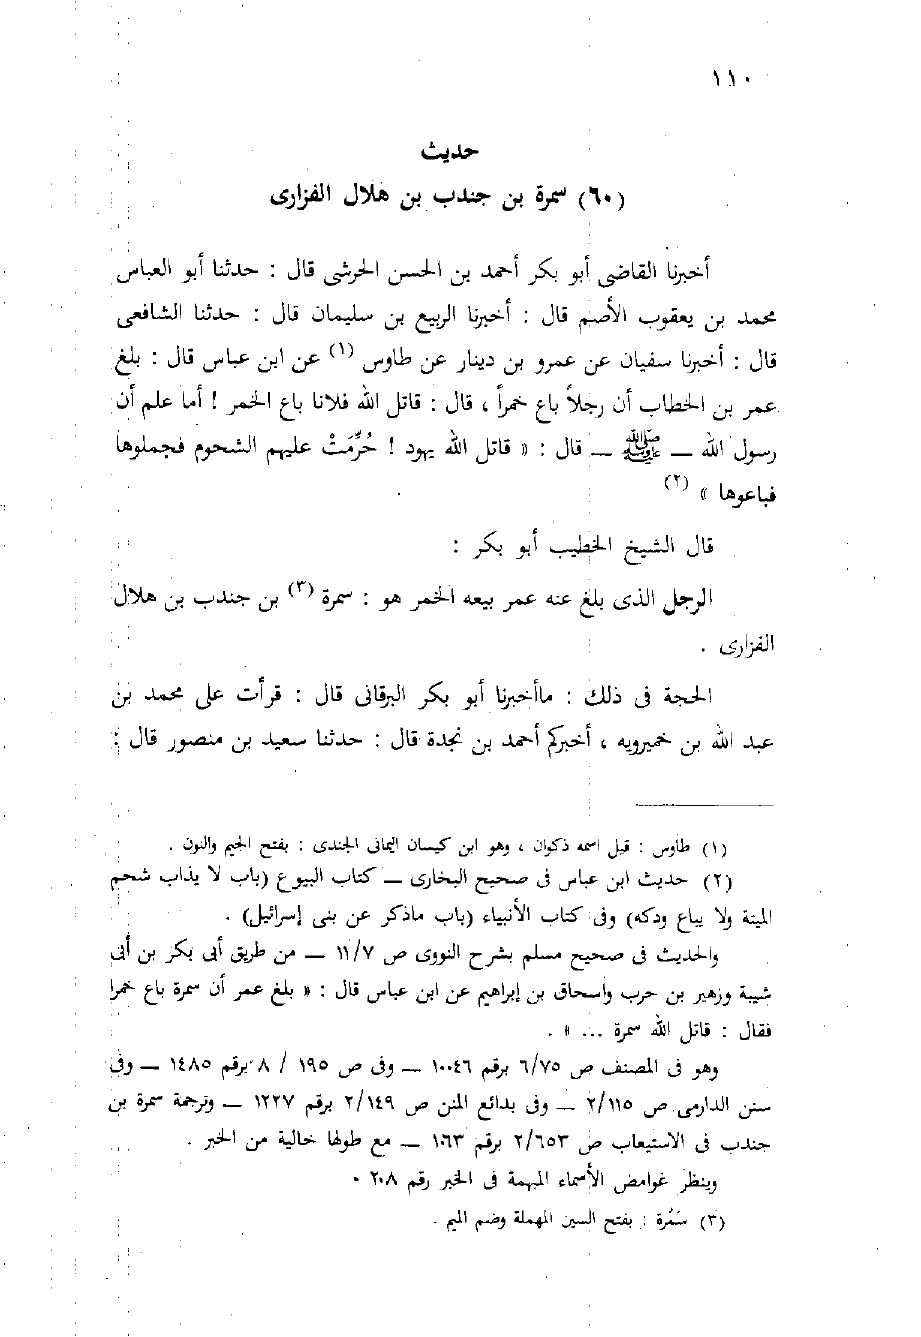 ١١٠
حديث
(٦٠) سمرة بن جندب بن هلال الفزارى
أخبرنا القاضى أبو بكر أحمد بن الحسن الحرشى قال : حدثنا أبو العباس
محمد بن يعقوب الأصم قال : أخبرنا الربيع بن سليمان قال : حدثنا الشافعى
قال : أخبرنا سفيان عن عمرو بن دينار عن طاوس (١) عن ابن عباس قال : بلغ
عمر بن الخطاب أن رجلاً باع خمراً ، قال : قاتل الله فلانا باع الخمر ! أما علم أن
رسول الله ــ ﷺ ــ قال : « قاتل الله يهود ! حُرِّمَتْ عليهم الشحوم فجملوها
فباعوها » (٢)
قال الشيخ الخطيب أبو بكر :
الرجل الذى بلغ عنه عمر بيعه الخمر هو : سمرة (٣) بن جندب بن هلال
الفزارى .
الحجة فى ذلك : ماأخبرنا أبو بكر البرقانى قال : قرأت على محمد بن
عبد الله بن خميرويه ، أخبركم أحمد بن نجدة قال : حدثنا سعيد بن منصور قال :
(١) طاوس : قيل اسمه ذكوان ، وهو ابن كيسان اليمانى الجندى : بفتح الجيم والنون .
(٢) حديث ابن عباس فى صحيح البخارى ــ كتاب البيوع (باب لا يذاب شحم
الميتة ولا يباع ودكه) وفى كتاب الأنبياء (باب ماذكر عن بنى إسرائيل) .
والحديث فى صحيح مسلم بشرح النووى ص ١١/٧ ــ من طريق أبى بكر بن أبى
شيبة وزهير بن حرب واسحاق بن إبراهيم عن ابن عباس قال : « بلغ عمر أن سمرة باع خمرا
فقال : قاتل الله سمرة ... » .
وهو فى المصنف ص ٦/٧٥ برقم ١٠٠٤٦ ــ وفى ص ١٩٥ / ٨ برقم ١٤٨٥ ــ وفى
سنن الدارمى ص ٢/١١٥ ــ وفى بدائع المنن ص ٢/١٤٩ برقم ١٢٢٧ ــ وترجمة سمرة بن
جندب فى الاستيعاب ص ٢/٦٥٣ برقم ١٠٦٣ ــ مع طولها خالية من الخبر .
وينظر غوامض الأسماء المبهمة فى الخبر رقم ٢٠٨ .
(٣) سَمُرة : بفتح السين المهملة وضم الميم .